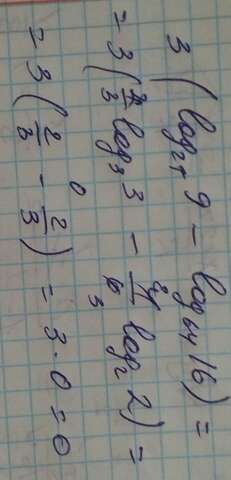 3 (log₂₇ 9 − log₆₄ 16) =
= 3 (2/3 log₃ 3 − 4/6 log₂ 2) =
= 3 (2/3 − 2/3) = 3 · 0 = 0